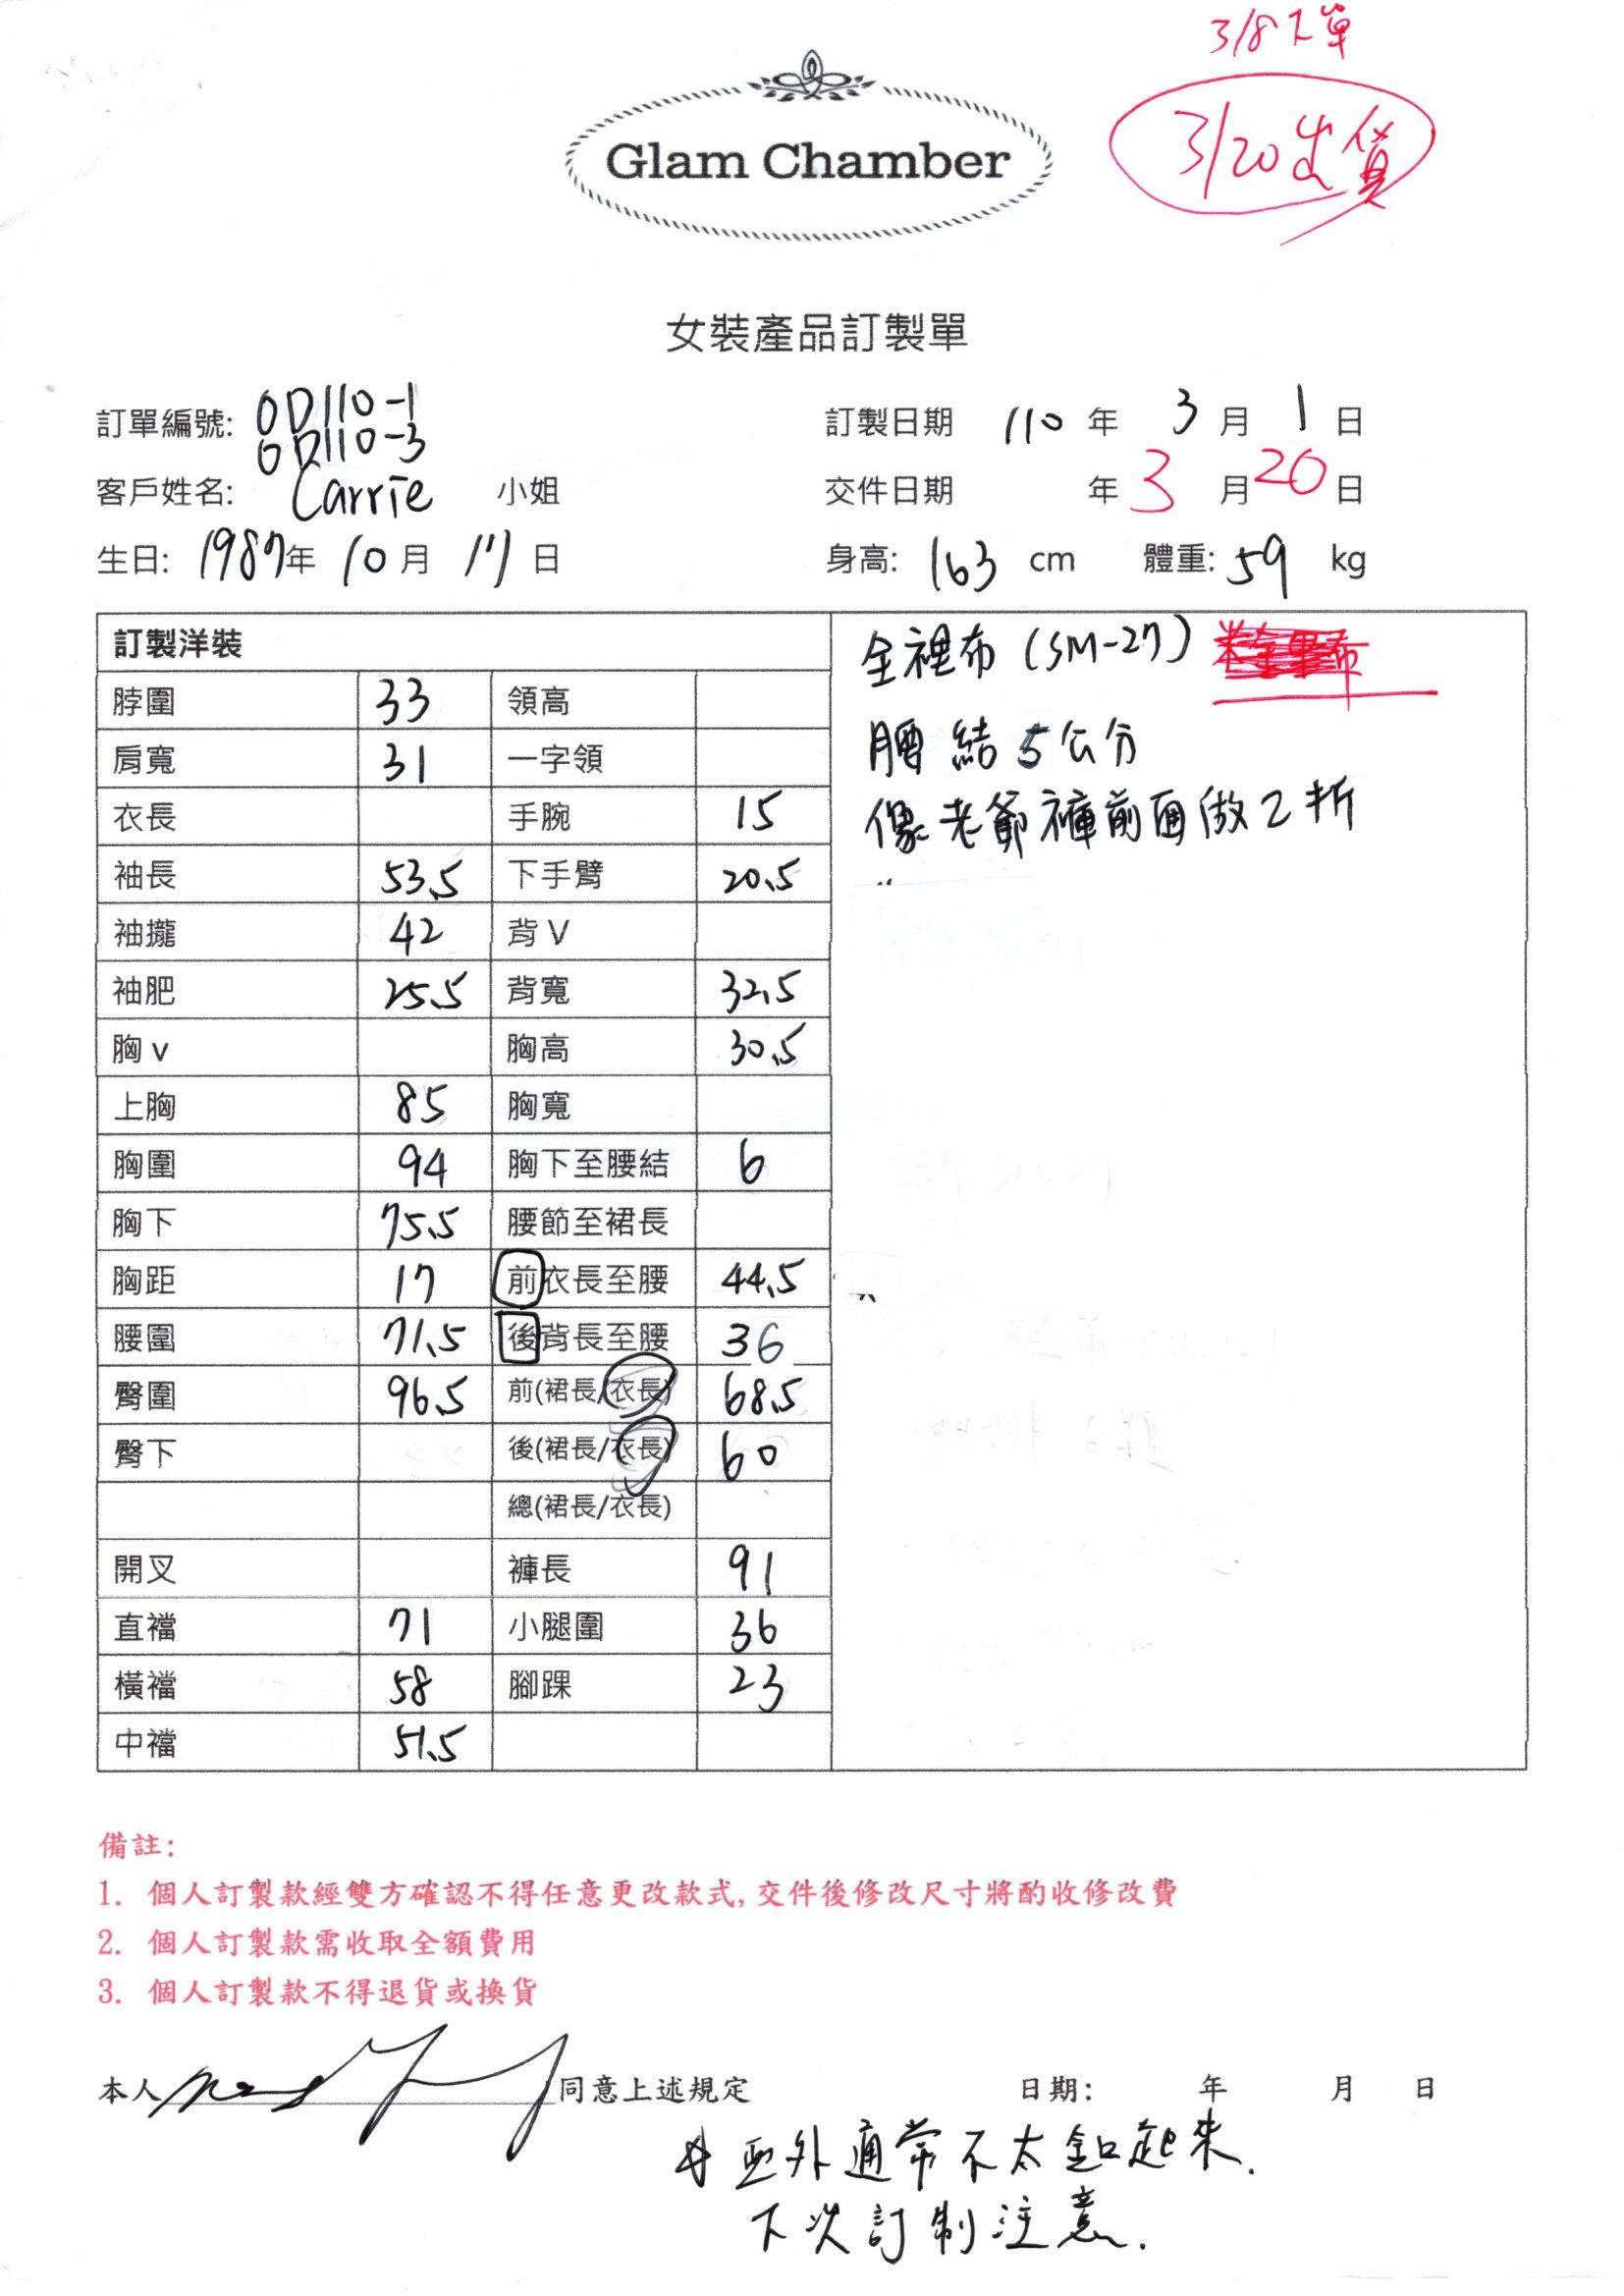 3/8下單
3/20出貨
Glam Chamber
女裝產品訂製單
訂單編號: OD110-1
OD110-3
訂製日期 110 年 3 月 1 日
客戶姓名: Carrie 小姐
交件日期 年 3 月 20 日
生日: 1987年 10 月 17 日
身高: 163 cm 體重: 59 kg
訂製洋裝
全裡布 (SM-27)
腰結5公分
像老爺褲前面做2折
脖圍 33 領高
肩寬 31 一字領
衣長 手腕 15
袖長 53.5 下手臂 20.5
袖攏 42 背V
袖肥 25.5 背寬 32.5
胸v 胸高 30.5
上胸 85 胸寬
胸圍 94 胸下至腰結 6
胸下 75.5 腰節至裙長
胸距 17 前衣長至腰 44.5
腰圍 71.5 後背長至腰 36
臀圍 96.5 前(裙長/衣長) 68.5
臀下 後(裙長/衣長) 60
總(裙長/衣長)
開叉 褲長 91
直襠 71 小腿圍 36
橫襠 58 腳踝 23
中襠 51.5
備註:
1. 個人訂製款經雙方確認不得任意更改款式,交件後修改尺寸將酌收修改費
2. 個人訂製款需收取全額費用
3. 個人訂製款不得退貨或換貨
本人 同意上述規定 日期: 年 月 日
外通常不太釦起來.
下次訂制注意.